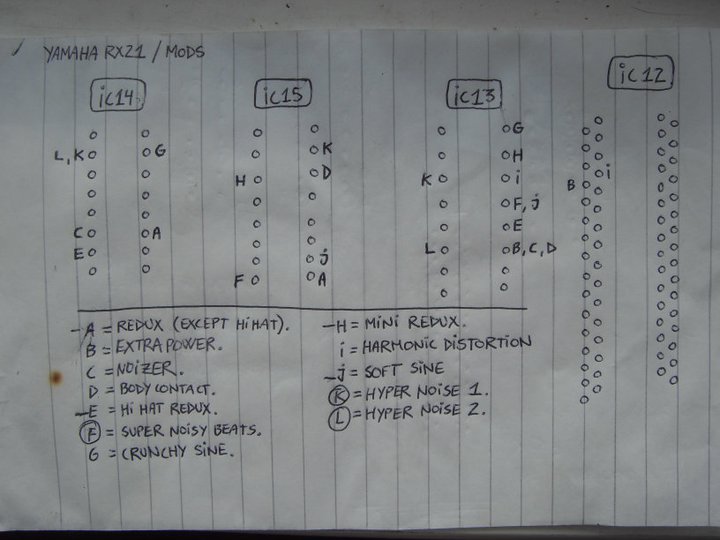 YAMAHA RX21 / MODS
ic14 ic15 ic13 ic12
G
L, K G K H
i
D
H K i B
F, j
C A E
E L B, C, D
j
F A
A = REDUX (EXCEPT HiHAT).
B = EXTRA POWER.
C = NOiZER.
D = BODY CONTACT.
E = Hi HAT REDUX.
F = SUPER NOiSY BEATS.
G = CRUNCHY SiNE.
H = MiNi REDUX.
i = HARMONIC DiSTORTION
j = SOFT SiNE
K = HYPER NOiSE 1.
L = HYPER NOiSE 2.